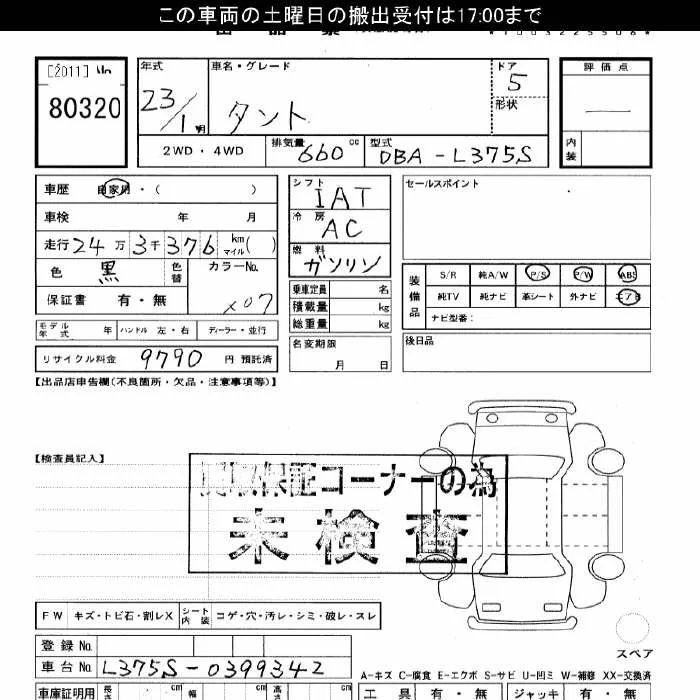 この車両の土曜日の搬出受付は17:00まで
[2011] No
80320
年式
23/1
車名・グレード
タント
ドア
5
形状
評価点
—
内装
2WD・4WD
排気量
660 cc
型式
DBA-L375S
車歴 自家用・( )
車検 年 月
走行 24万 3千 376 km マイル ( )
色 黒 色替
カラーNo.
X07
保証書 有・無
モデル年式 年 ハンドル 左・右 ディーラー・並行
リサイクル料金 9790 円 預託済
シフト
IAT
冷房
AC
燃料
ガソリン
乗車定員 名
積載量 kg
総重量 kg
名変期限
月 日
セールスポイント
装備品
S/R 純A/W P/S P/W ABS
純TV 純ナビ 革シート 外ナビ エアB
ナビ型番:
後日品
【出品店申告欄(不良箇所・欠品・注意事項等)】
【検査員記入】
買取保証コーナーの為
未検査
FW キズ・トビ石・割レX シート内装 コゲ・穴・汚レ・シミ・破レ・スレ
スペア
登録No.
車台No. L375S-0399342
A-キズ C-腐食 E-エクボ S-サビ U-凹ミ W-補修 XX-交換済
車庫証明用 長さ cm 幅 cm 高さ cm
工具 有・無 ジャッキ 有・無